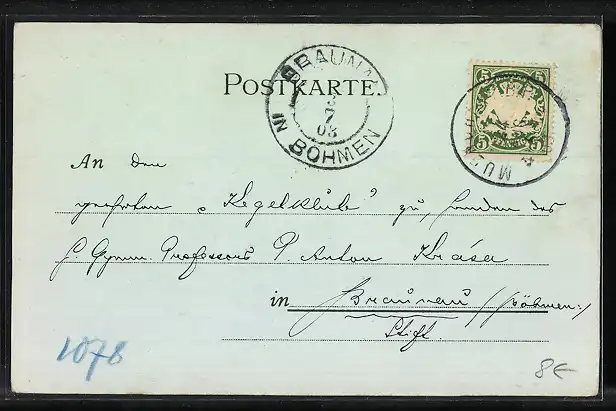 POSTKARTE.
BRAUNAU
3
7
03
IN BÖHMEN
5 5
PFENNIG
5 5
An den
geehrten „Kegelklub“ zu Handen des
H. Gymn. Professors P. Anton Krása
in Braunau (Böhmen)
Stift.
1078
8€